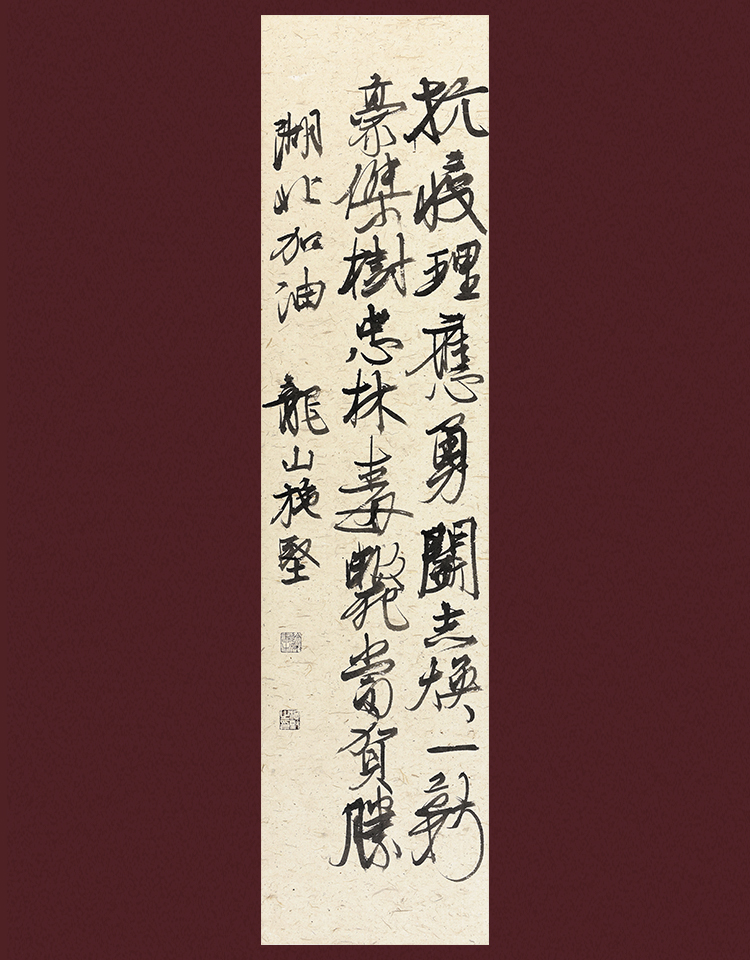 抗疫理應勇鬭志煥一新
豪傑樹忠林毒斃當賀勝
湖北加油 龍山施堅